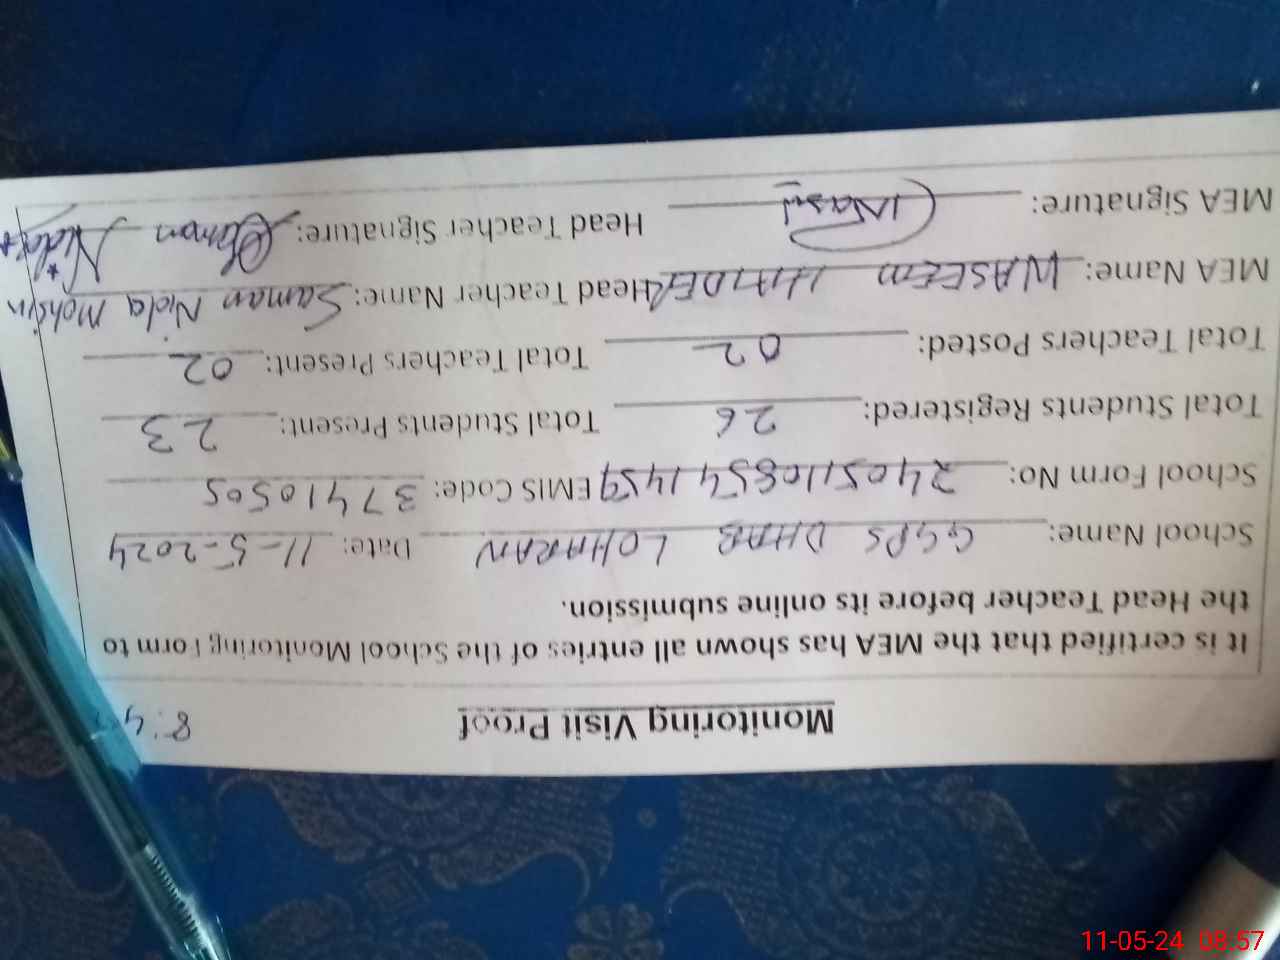 Monitoring Visit Proof
It is certified that the MEA has shown all entries of the School Monitoring Form to
the Head Teacher before its online submission.
School Name: GGPS DHAB LOHARAN Date: 11-5-2024
School Form No: 240511086541459 EMIS Code: 37410505
Total Students Registered: 26 Total Students Present: 23
Total Teachers Posted: 02 Total Teachers Present: 02
MEA Name: WASEEM HAIDER Head Teacher Name: Saman Nida Mohsin
MEA Signature: Head Teacher Signature: Saman Nida
11-05-24 08:57